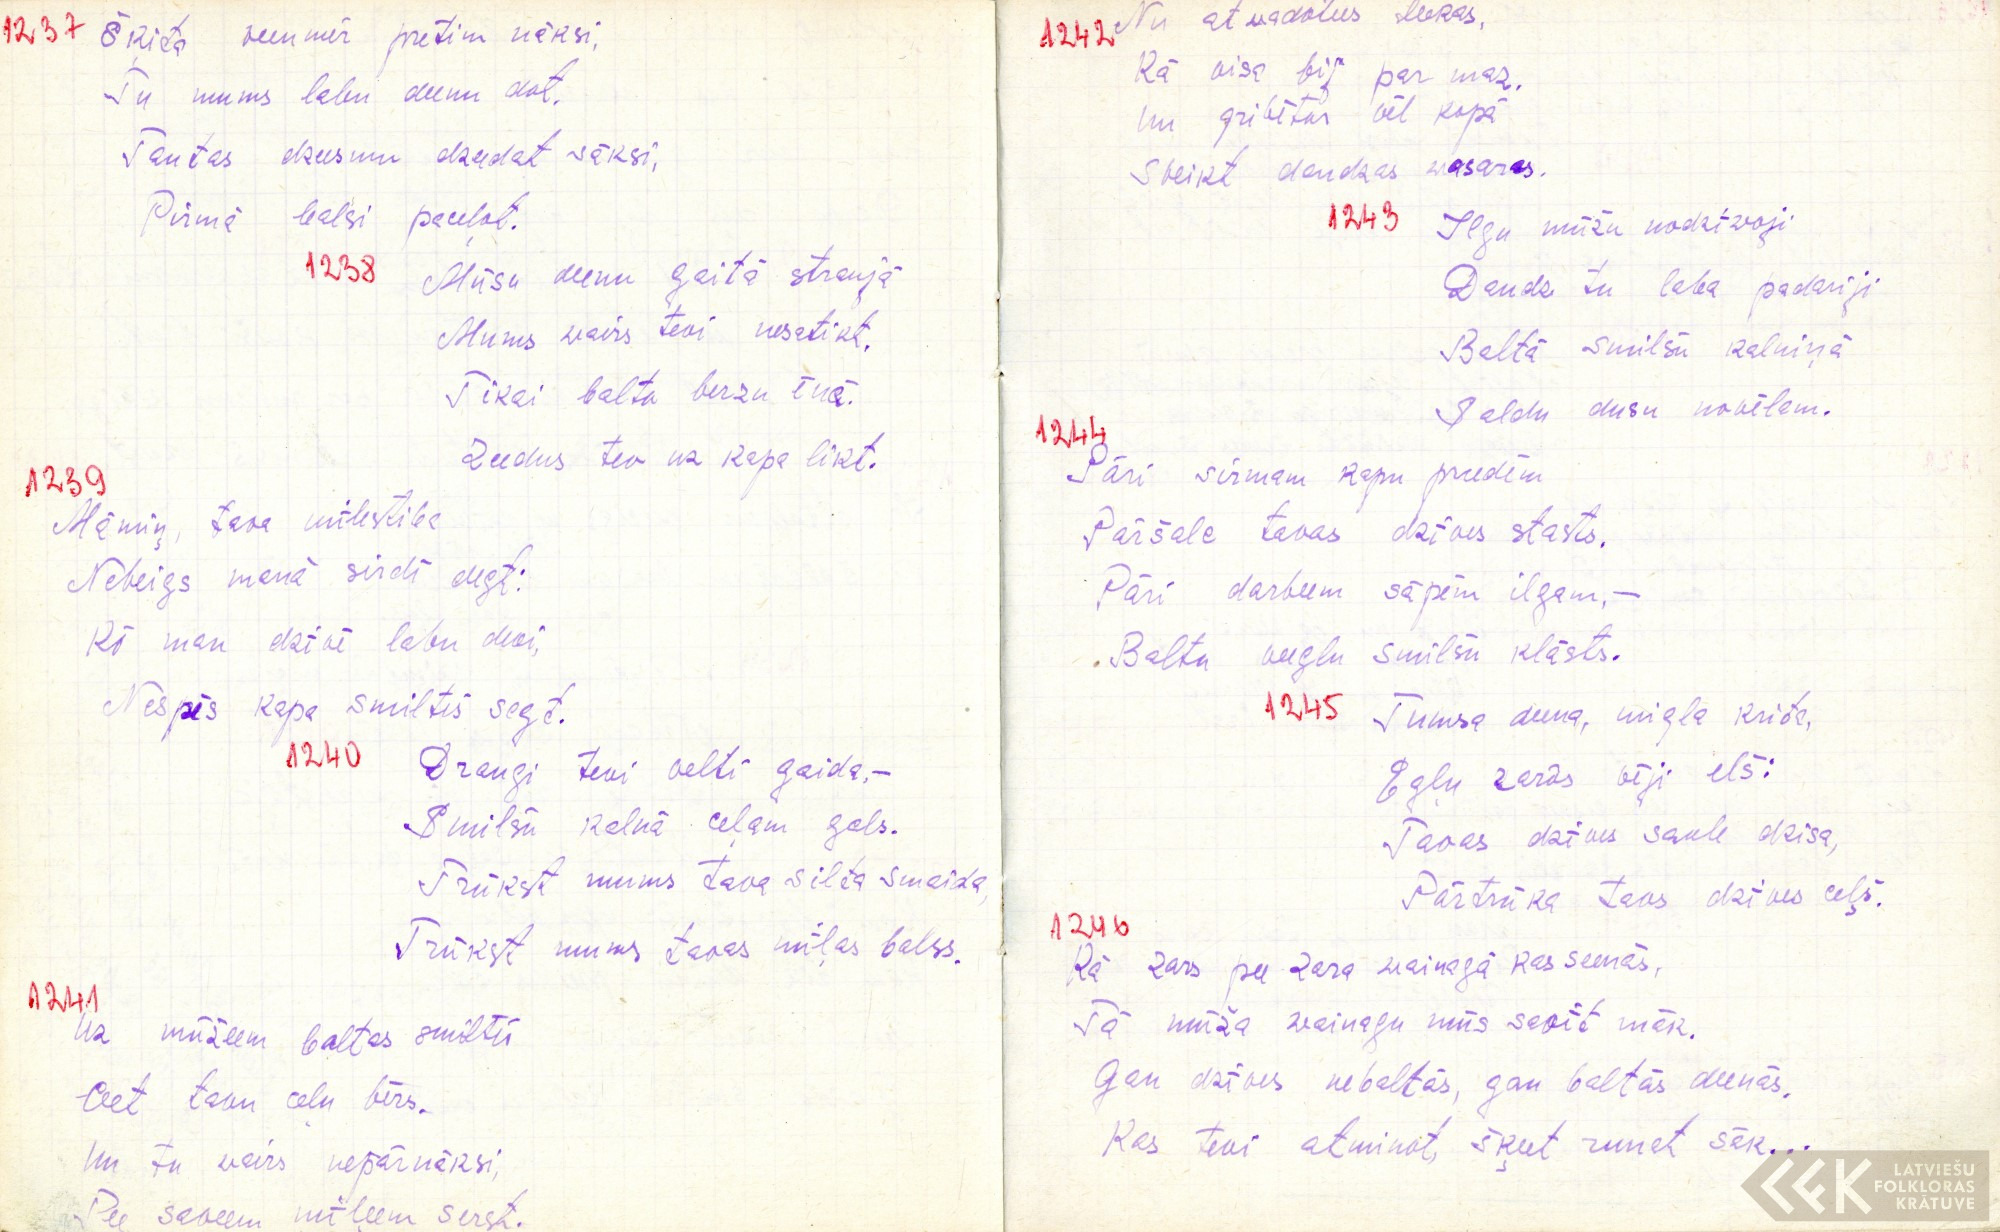 1237
Šķita veenmēr pretim nāksi,
Tu mums labu deenu dot.
Tautas dzeesmu dzeedat sāksi,
Pirmā balsi paceļot.
1238
Mūsu deenu gaitā straujā
Mums wairs tevi nesatikt,
Tikai baltu berzu ēnā.
Zeedus tev uz kapa likt.
1239
Māmiņ, tava mīlestība
Nebeigs manā sirdī degt:
Ko man dzīvē labu devi,
Nespēs kapa smiltis segt.
1240
Draugi tevi velti gaida,—
Smilšu kalnā ceļam gals.
Trūkst mums tava silta smaida,
Trūkst mums tavas mīļas balss.
1241
Uz mūžeem baltas smiltis
Ceet tavu ceļu bērs.
Un tu wairs nepārnāksi,
Pee saveem mīļeem serst.
1242
Nu atwadotees leekas,
Kā visa bij par maz.
Un gribētos vēl kopā
Sveikt daudzas wasaras.
1243
Ilgu mūžu nodzīwoji
Daudz tu laba padariji
Baltā smilšu kalniņā
Saldu dusu novēlam.
1244
Pāri sirmam kapu preedēm
Pāršalc tavas dzīves stasts.
Pāri darbeem sāpēm ilgam,—
Baltu veeglu smilšu klāsts.
1245
Tumsa deena, migla krita,
Egļu zaros vēji elš:
Tavas dzīves saule dzisa,
Pārtrūka tavs dzīves ceļš.
1246
Kā zars pee zara wainagā kas seenās,
Tā mūža wainagu mūs savīt māk.
Gan dzīves nebaltās, gan baltās deenās,
Kas tevi atminot, šķeet runat sāk...
LATVIEŠU
FOLKLORAS
KRĀTUVE